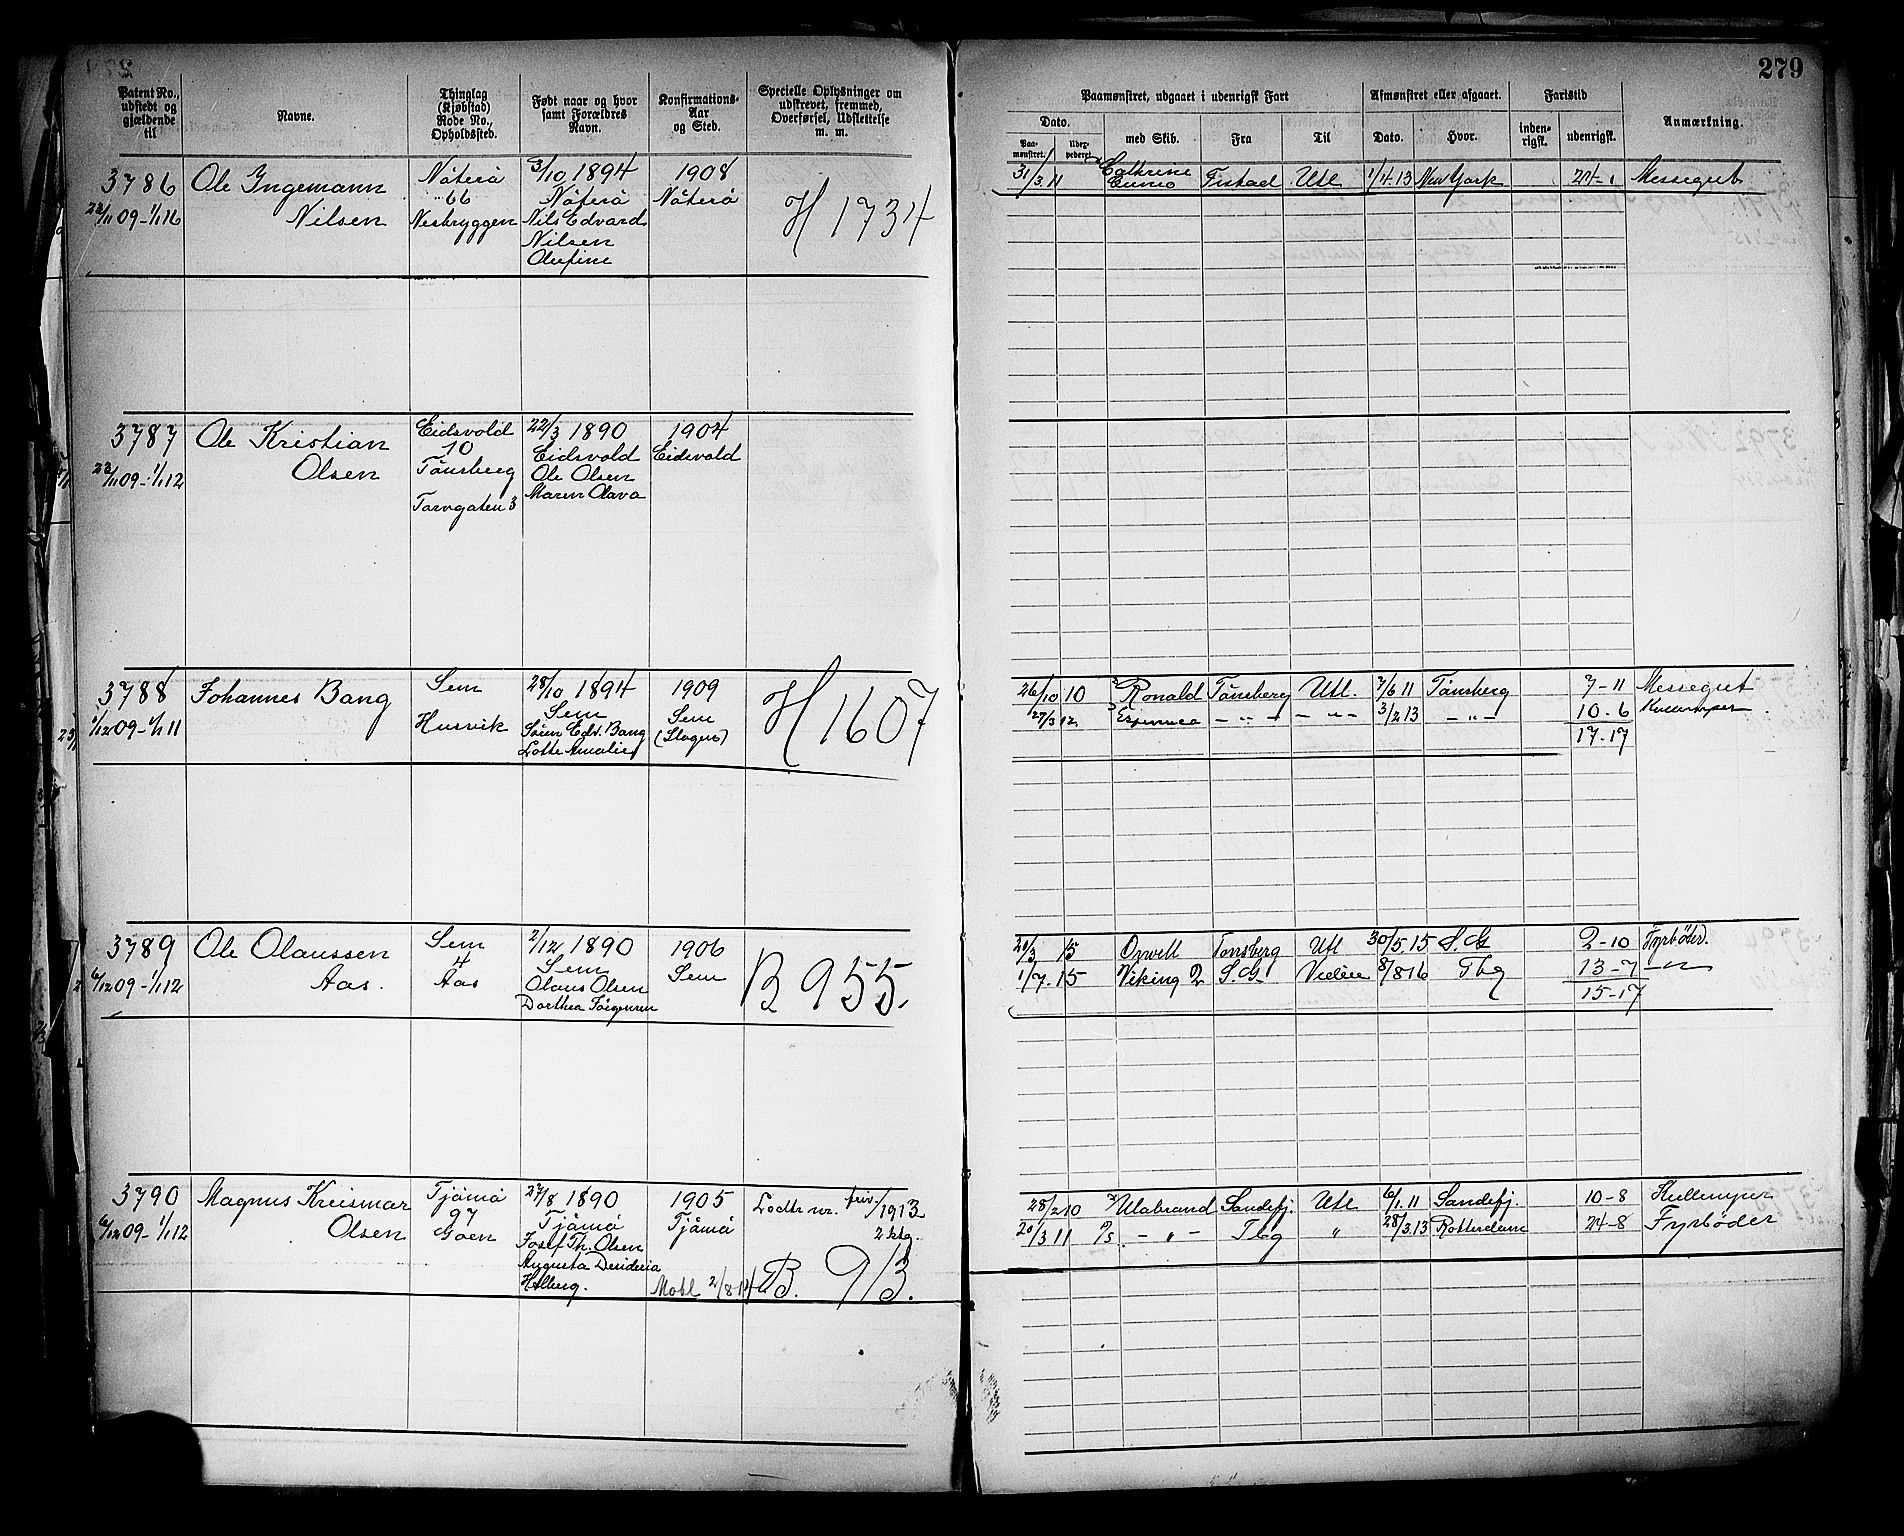 279
Patent No., udstedt og gjældende til
Navne.
Thinglag (Kjøbstad) Rode No., Opholdssted.
Født naar og hvor samt Forældres Navn.
Konfirmations-Aar og Sted.
Specielle Oplysninger om udskrevet, fremmed, Overførsel, Udslettelse m. m.
Paamønstret, udgaaet i udenrigsk Fart
Afmønstret eller afgaaet.
Farts tid
Anmærkning.
Dato.
med Skib.
Fra
Til
Dato.
Hvor.
inden-rigsk.
udenrigsk.
Paa-mønstret.
3786
22/11 09-1/1 16
Ole Ingemann
Nilsen
Nøterø
66
Nesbryggen
3/10 1894
Nøterø
Nils Edvard
Nilsen
Olufine
1908
Nøterø
H 1734
31/3.11
Cathrine
Fistad Utl 1/4.13 New York
Messegut
3787
23/11 09-1/1 12
Ole Kristian
Olsen
Eidsvold
10
Tønsberg
Farvgaten 3
22/3 1890
Eidsvold
Ole Olsen
Maren Olava
1904
Eidsvold
3788
1/12 09-1/1 11
Johannes Bang
Sem
Husvik
28/10 1894
Sem
Søren Edv. Bang
Lotte Amalie
1909
Sem
(Slagen)
H 1607
26/10 10 Ronald Tønsberg Utl. 7/6 11 Tønsberg 7-11 Messegut
27/3 12 - " - - " - 3/2 13 - " - 10-6
17-17
3789
6/12 09-1/1 12
Ole Olaussen
Aas.
Sem
4
Aas
2/12 1890
Sem
Olaus Olsen
Dorthea Jørgensen
1906
Sem
B 955.
20/3 15 Orwell Tønsberg Utl 30/5.15 S.G 2-10 Fyrbøder.
1/7.15 Viking 2 S.G. 8/8 16 Tbg 13-7 -"-
15-17
3790
6/12 09-1/1 12
Magnus Kreismar
Olsen
Tjømø
97
Goen
27/8 1890
Tjømø
Josef Th. Olsen
Augusta Desideria
Holberg.
1905
Tjømø
Mobl 2/8-14
Lodtr nr. friv./1913
2 ktg.
B. 913.
28/2 10 Ulabrand Sandefj. Utl 6/1.11 Sandefj. 10-8 Kullemper
20/3 11 - " - Tbg " 28/3.13 Rotterdam 24-8 Fyrbøder